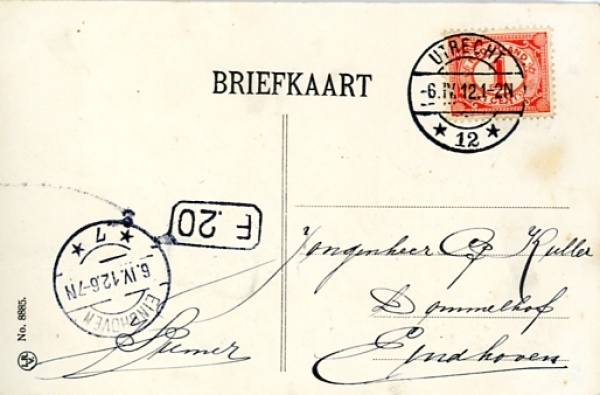 BRIEFKAART
UTRECHT
-6.IV.12.1-2N
★ 12 ★
1
F.20
★ 7 ★
6.IV.12.6-7N
EINDHOVEN
Jongenheer Cp Kuller
Dommelhof
Eindhoven
No. 8885.